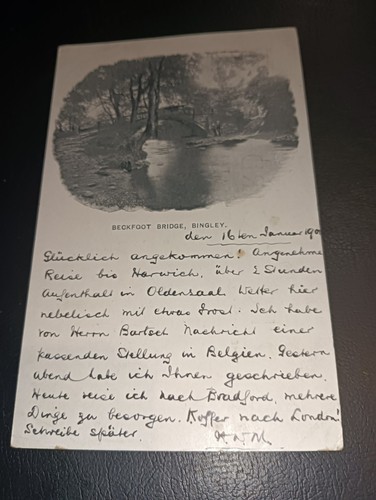 BECKFOOT BRIDGE, BINGLEY.
den 16ten Januar 190
Glücklich angekommen! Angenehme
Reise bis Harwich, über 2 Stunden
Aufenthalt in Oldensaal. Wetter hier
neblisch mit etwas Frost. Ich habe
von Herrn Bartsch Nachricht einer
passenden Stellung in Belgien. Gestern
abend habe ich Ihnen geschrieben.
Heute reise ich nach Bradford, mehrere
Dinge zu besorgen. Koffer nach London!
Schreibe später.